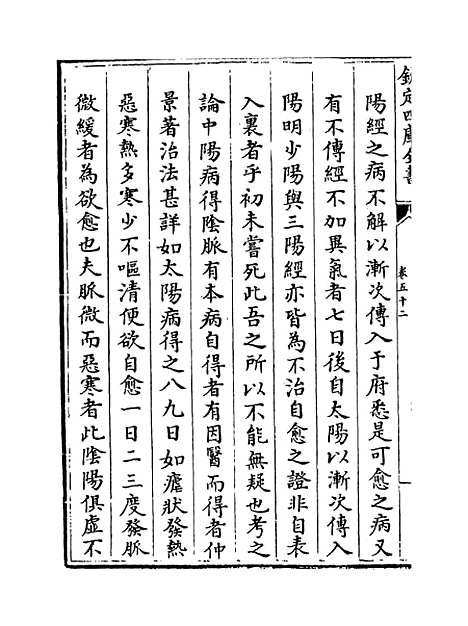 欽定四庫全書
卷五十二
陽經之病不解以漸次傳入于府悉是可愈之病又
有不傳經不加異氣者七日後自太陽以漸次傳入
陽明少陽與三陽經亦皆為不治自愈之證非自表
入裏者乎初未嘗死此吾之所以不能無疑也考之
論中陽病得陰脈有本病自得者有因醫而得者仲
景著治法甚詳如太陽病得之八九日如瘧狀發熱
惡寒熱多寒少不嘔清便欲自愈一日二三度發脈
微緩者為欲愈也夫脈微而惡寒者此陰陽俱虛不